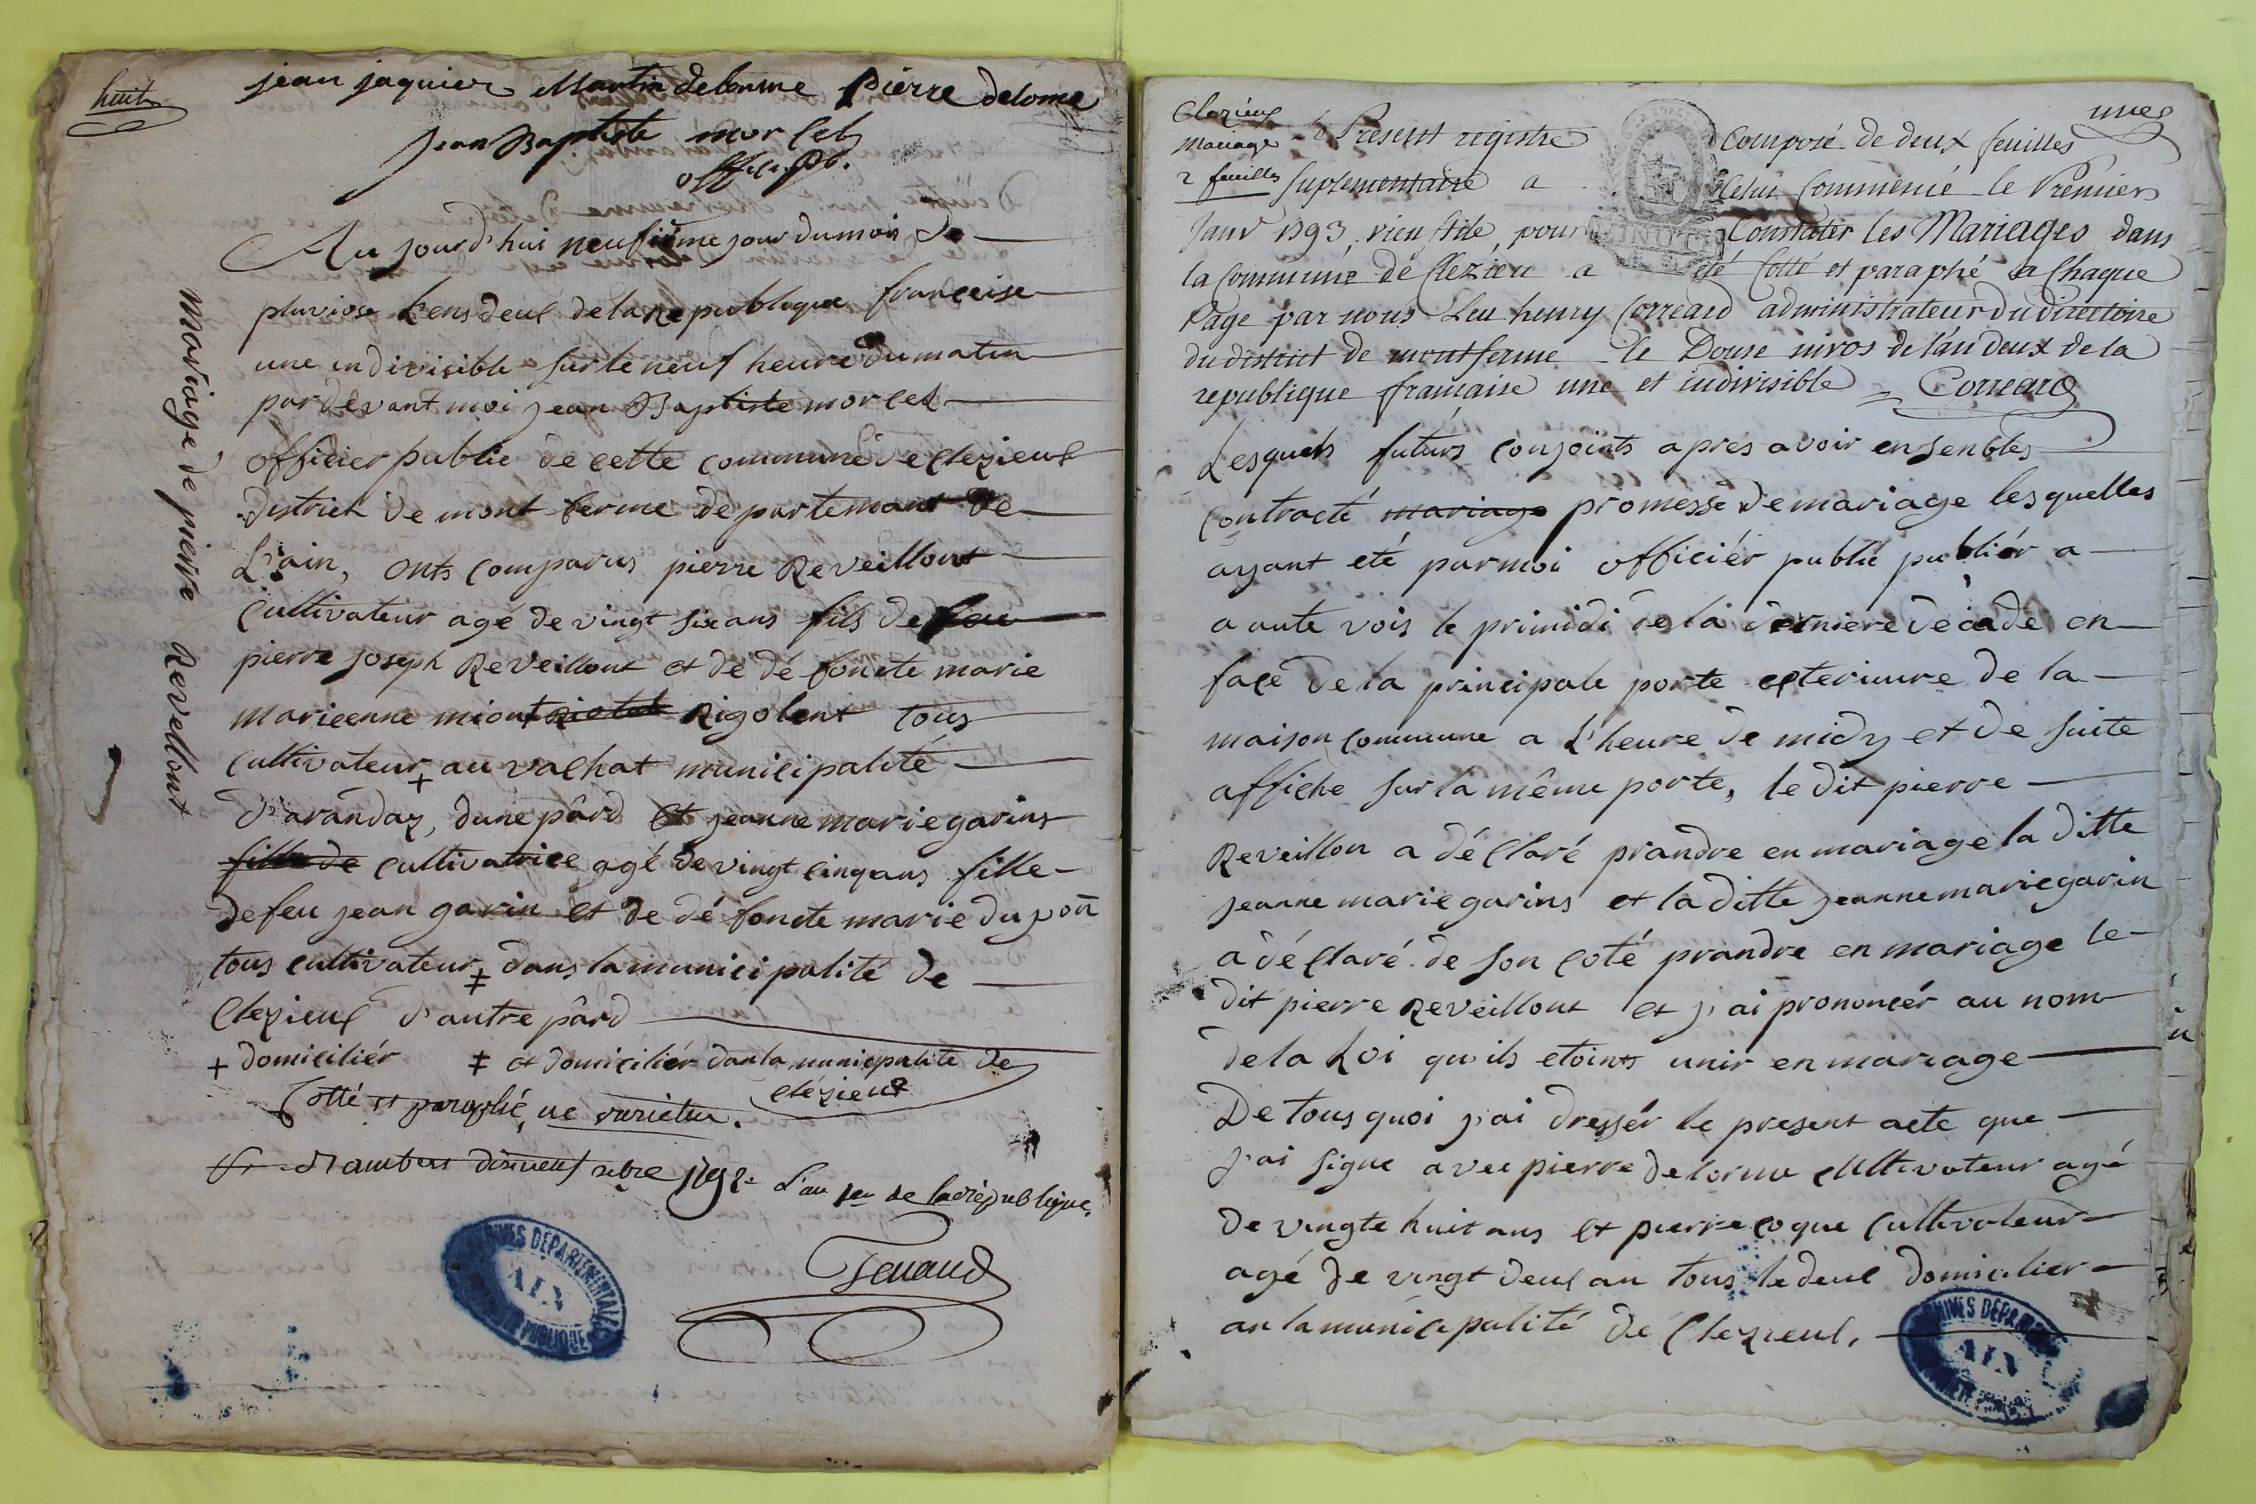 huit
jean jaquier Martin delorme Pierre delorme
jean Baptiste morcel
offici. pb.
Mariage de pierre Revellont
Au jourd'hui neufième jour du mois de
pluviose L'ens deul de la Republique franceise
une indivisible sur le neuf heure du matin
par devant moi jean Baptiste morcel
officier public de cette commune de clezieul
district de mont ferme departemant de
L'ain, onts comparus pierre Reveillont
cultivateur agé de vingt six ans fils de feu
pierre joseph Reveillont et de dé foncte marie
marieenne miont Rigolent tous
cultivateur + au vachat municipalité
d'aranday, dune pârd et jeanne marie garins
fille de cultivatrice agé de vingt cinq ans fille
de feu jean garin et de dé foncte marie dupon
tous cultivateur ‡ dans la municipalité de
Clezieul d'autre pârd
+ domiciliér ‡ et domiciliér dan la municipalité de
clézieux
Cotté et paraphé, ne varietur.
St Rambert dixneuf xbre 1792. L'an 1er de la republique.
Tenand
ARCHIVES DEPARTEMENTALES
AIN
une
Clezieux
Mariage
2 feuilles
le Present registre Composé de deux feuilles
suplementaire a Celui Commencé le Premier
Janv 1793 vieu stile, pour Constater les Mariages dans
la Commune de Clezieu a été Cotté et paraphé a Chaque
Page par nous Leu henry Correard administrateur du directoire
du district de montferme le Douse nivos de l'an deux de la
republique française une et indivisible Correard
Lesquels futurs conjoints apres avoir ensenbles
contracté mariage promesse de mariage les quelles
ayant eté par moi officiér public publiér a
a aute vois le primidi de la derniere decade en
face de la principale porte exterieure de la
maison commune a L'heure de midy et de suite
affiche sur la même porte, le dit pierre
Reveillon a déclaré prandre en mariage la ditte
jeanne marie garins et la ditte jeanne marie garin
a déclaré de son coté prandre en mariage le
dit pierre Reveillont et j'ai prononcér au nom
de la Loi qu'ils etoints unir en mariage
De tous quoi j'ai dressér le present acte que
j'ai signe avec pierre delorme cultivateur agé
de vingte huit ans et pierre coque cultivateur
agé de vingt deul an tous le deul domicilier
an la municipalité de Clezieul.
ARCHIVES DEPARTEMENTALES
AIN